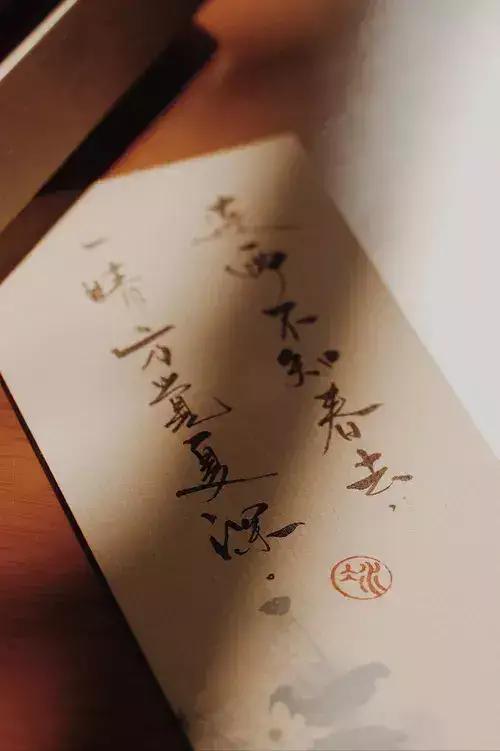 连雨不知春去，
一晴方觉夏深。